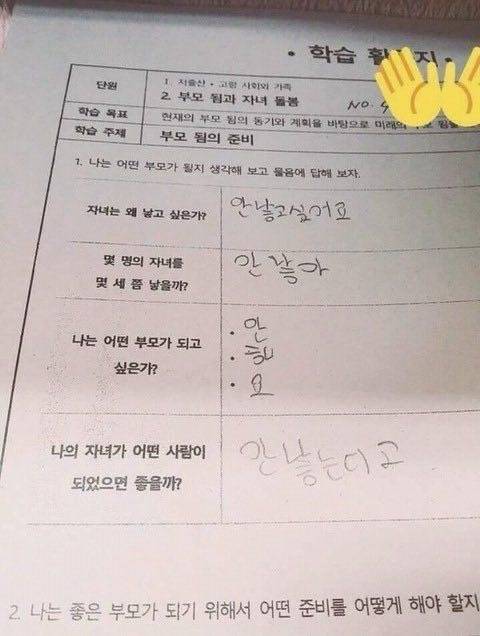 • 학습 활 지 •
단원
1. 저출산·고령 사회와 가족
2. 부모 됨과 자녀 돌봄
NO.
학습 목표
현재의 부모 됨의 동기와 계획을 바탕으로 미래의
학습 주제
부모 됨의 준비
1. 나는 어떤 부모가 될지 생각해 보고 물음에 답해 보자.
자녀는 왜 낳고 싶은가?
안낳고싶어요
몇 명의 자녀를
몇 세 쯤 낳을까?
안 낳아
나는 어떤 부모가 되고
싶은가?
• 안
• 해
• 요
나의 자녀가 어떤 사람이
되었으면 좋을까?
안 낳는다고
2. 나는 좋은 부모가 되기 위해서 어떤 준비를 어떻게 해야 할지